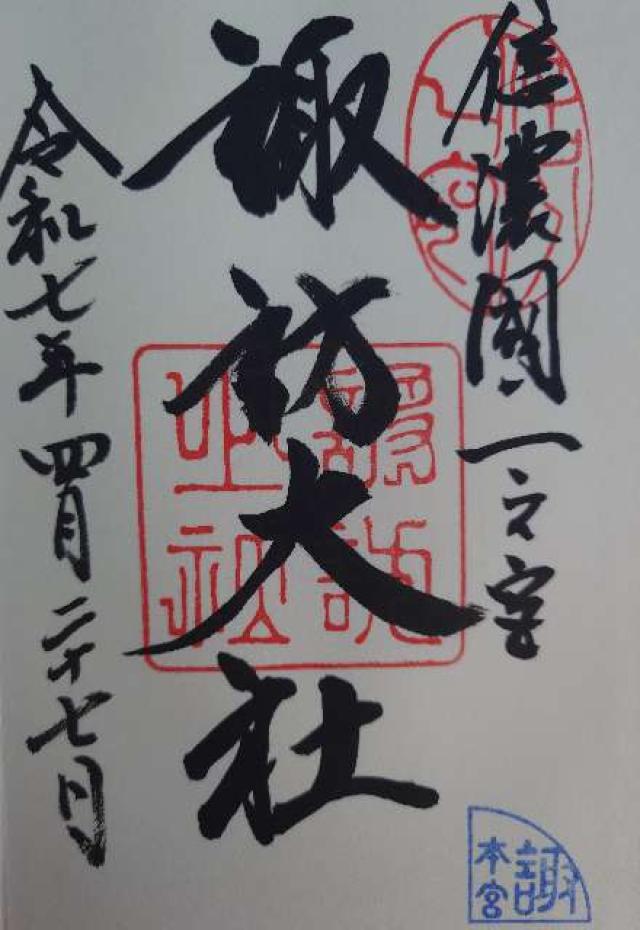 信濃國一之宮
諏訪大社
令和七年四月二十七日
本宮